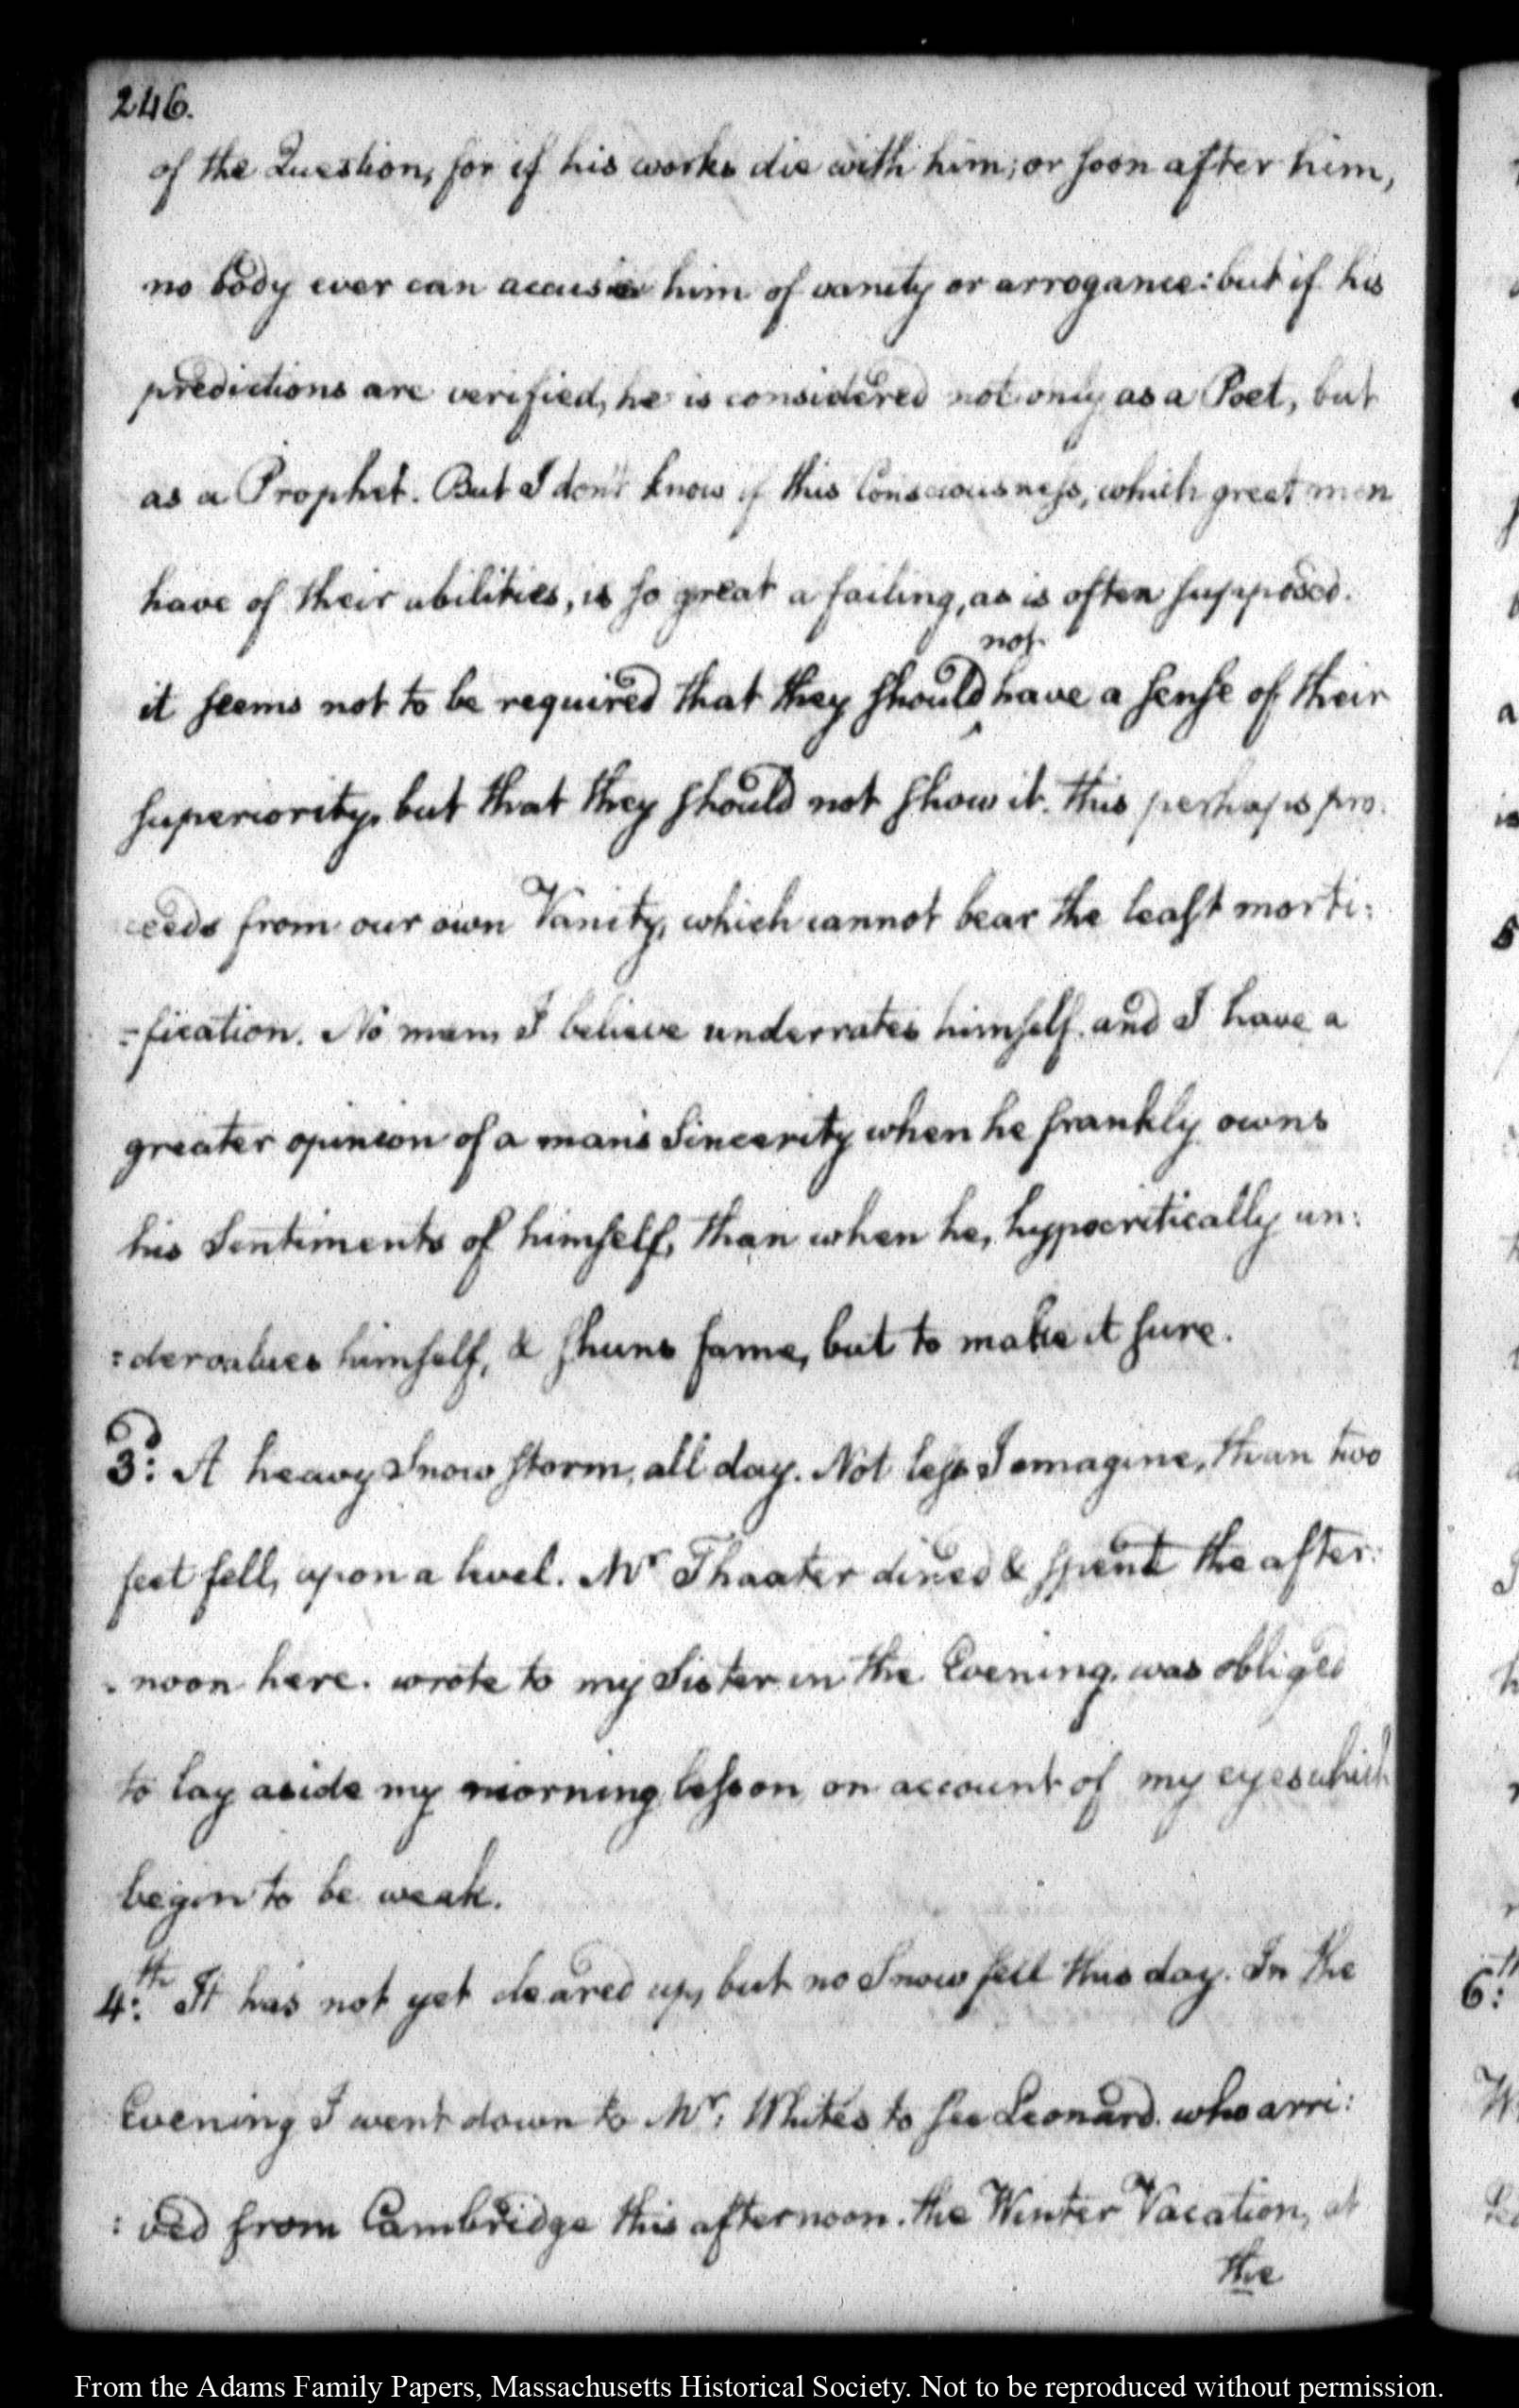 246.
of the Question, for if his works die with him; or soon after him,
no body ever can accuse him of vanity or arrogance: but if his
predictions are verified, he is considered not only as a Poet, but
as a Prophet. But I don't know if this Consciousness, which great men
have of their abilities, is so great a failing, as is often supposed.
not
it seems not to be required that they should ‸ have a sense of their
superiority, but that they should not show it. this perhaps pro:
ceeds from our own Vanity, which cannot bear the least morti:
=fication. No man, I believe underrates himself. and I have a
greater opinion of a man's Sincerity when he frankly owns
his Sentiments of himself, than when he, hypocritically un:
:dervalues himself, & shuns fame, but to make it sure.
3d: A heavy Snow storm, all day. Not less I imagine, than two
feet fell, upon a level. Mr Thaxter dined & spent the after:
:noon here. wrote to my Sister in the Evening. was obliged
to lay aside my morning lesson on account of my eyes which
begin to be weak.
4:th It has not yet cleared up, but no Snow fell this day. In the
Evening I went down to Mr: White's to see Leonard. who arri:
:ved from Cambridge this afternoon. the Winter Vacation, at
the
From the Adams Family Papers, Massachusetts Historical Society. Not to be reproduced without permission.